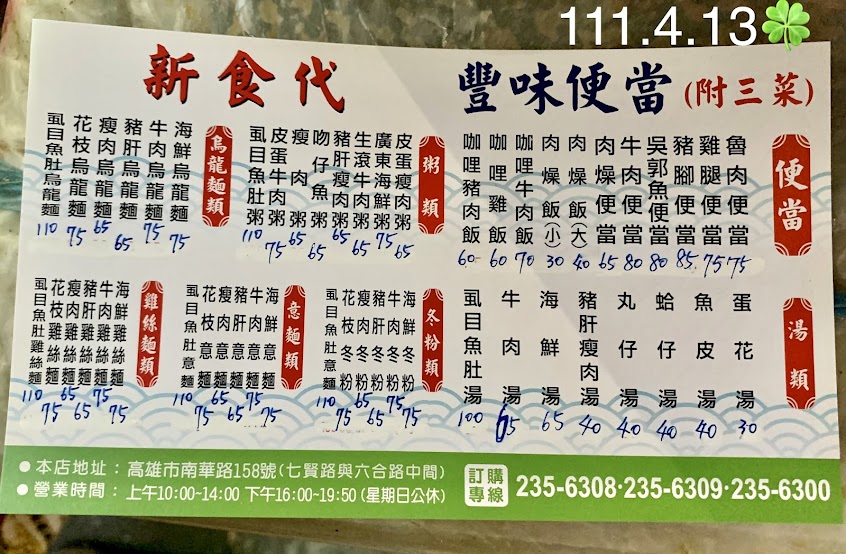 111.4.13🍀
新食代
豐味便當(附三菜)
便當
魯肉便當 75
雞腿便當 75
豬腳便當 85
吳郭魚便當 80
牛肉便當 80
肉燥便當 65
肉燥飯(大) 40
肉燥飯(小) 30
咖哩牛肉飯 70
咖哩雞飯 60
咖哩豬肉飯 60
粥類
皮蛋瘦肉粥 65
廣東海鮮粥 75
生滾牛肉粥 65
豬肝瘦肉粥 65
吻仔魚粥 65
瘦肉粥 65
皮蛋牛肉粥 75
虱目魚肚粥 110
烏龍麵類
海鮮烏龍麵 75
牛肉烏龍麵 75
豬肝烏龍麵 65
瘦肉烏龍麵 65
花枝烏龍麵 75
虱目魚肚烏龍麵 110
湯類
蛋花湯 30
魚皮湯 40
蛤仔湯 40
丸仔湯 40
豬肝瘦肉湯 40
海鮮湯 65
牛肉湯 65
虱目魚肚湯 100
冬粉類
海鮮冬粉 75
牛肉冬粉 75
豬肝冬粉 65
瘦肉冬粉 65
花枝冬粉 75
虱目魚肚意麵 110
意麵類
海鮮意麵 75
牛肉意麵 75
豬肝意麵 65
瘦肉意麵 65
花枝意麵 75
虱目魚肚意麵 110
雞絲麵類
海鮮雞絲麵 75
牛肉雞絲麵 75
豬肝雞絲麵 65
瘦肉雞絲麵 65
花枝雞絲麵 75
虱目魚肚雞絲麵 110
●本店地址：高雄市南華路158號(七賢路與六合路中間)
●營業時間：上午10:00-14:00 下午16:00~19:50(星期日公休)
訂購專線 235-6308·235-6309·235-6300